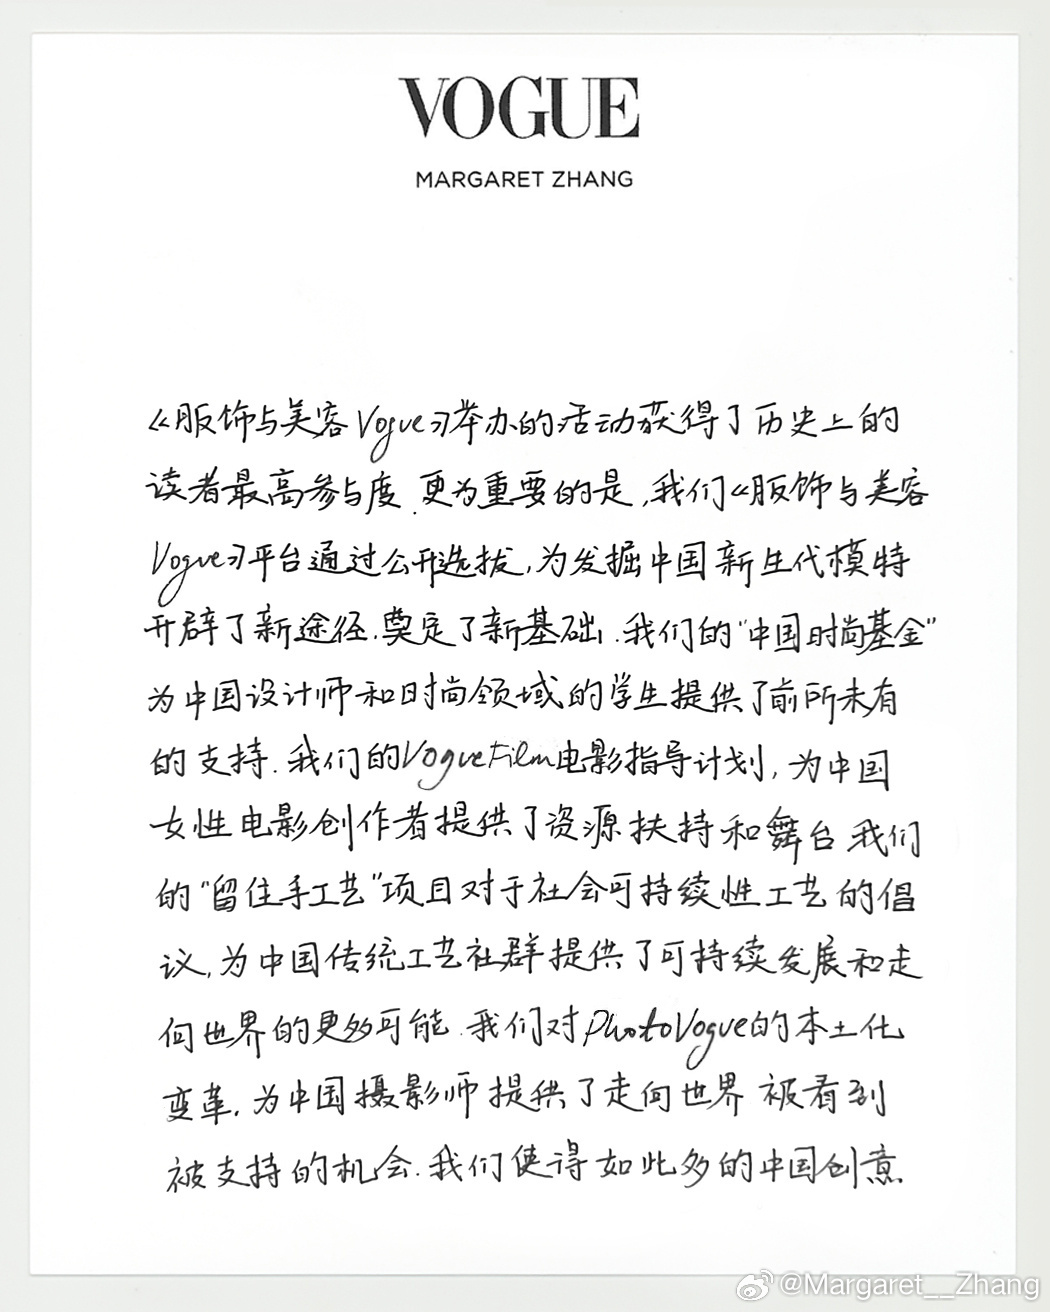 VOGUE
MARGARET ZHANG
《服饰与美容Vogue》举办的活动获得了历史上的
读者最高参与度.更为重要的是,我们《服饰与美容
Vogue》平台通过公开选拔,为发掘中国新生代模特
开辟了新途径.奠定了新基础.我们的"中国时尚基金"
为中国设计师和时尚领域的学生提供了前所未有
的支持.我们的VogueFilm电影指导计划,为中国
女性电影创作者提供了资源扶持和舞台 我们
的"留住手工艺"项目对于社会可持续性工艺的倡
议,为中国传统工艺社群提供了可持续发展和走
向世界的更多可能.我们对PhotoVogue的本土化
变革,为中国摄影师提供了走向世界 被看到
被支持的机会.我们使得如此多的中国创意
@Margaret__Zhang